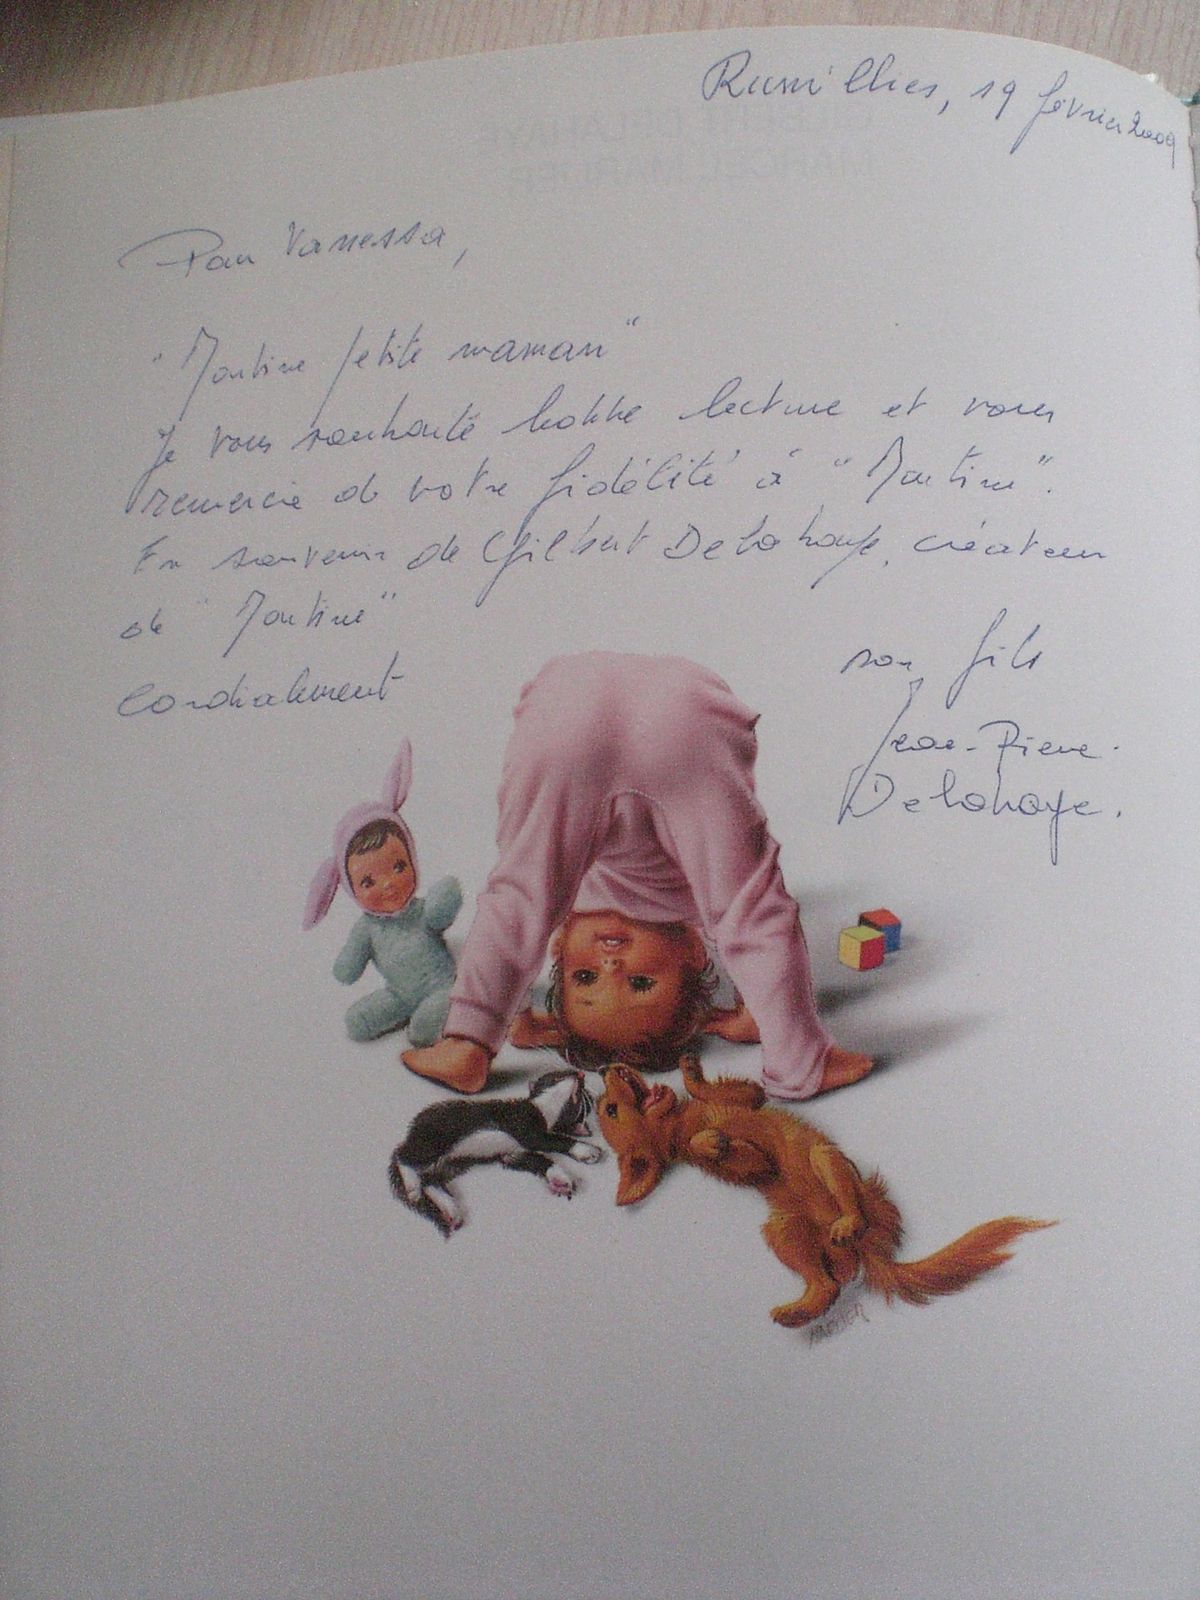 Rumillies, 19 février 2009
Pour Vanessa,
"Martine petite maman"
Je vous souhaite bonne lecture et vous
remercie de votre fidélité à "Martine".
En souvenir de Gilbert Delahaye, créateur
de "Martine"
Cordialement
son fils
Jean-Pierre
Delahaye.
MARLIER